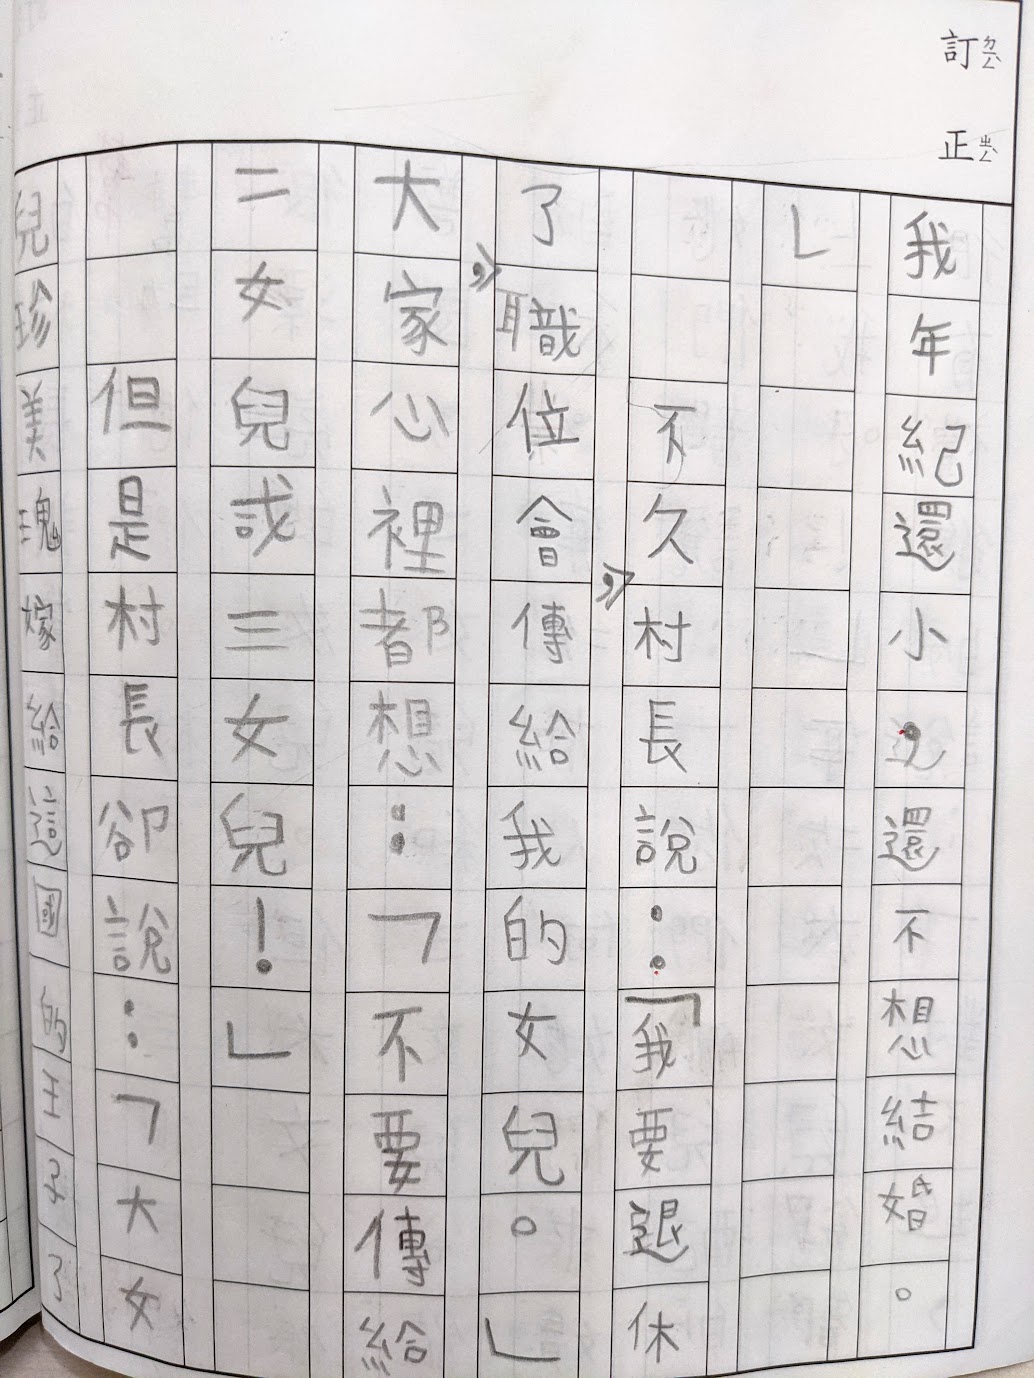 訂ㄉㄧㄥˋ正ㄓㄥˋ
我年紀還小,還不想結婚。
」
不久,村長說:「我要退休
了,職位會傳給我的女兒。」
大家心裡都想:「不要傳給
二女兒或三女兒!」
但是村長卻說:「大女
兒珍美瑰嫁給這國的王子了